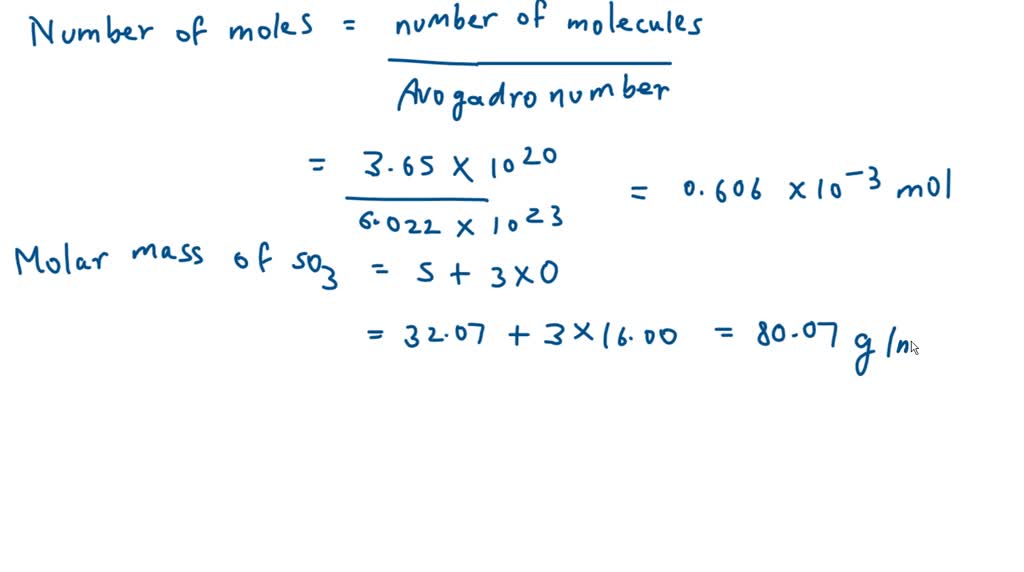 Number of moles = number of molecules
Avogadro number
= 3.65 × 10²⁰
6.022 × 10²³
= 0.606 × 10⁻³ mol
Molar mass of SO₃ = S + 3 × O
= 32.07 + 3 × 16.00 = 80.07 g/m